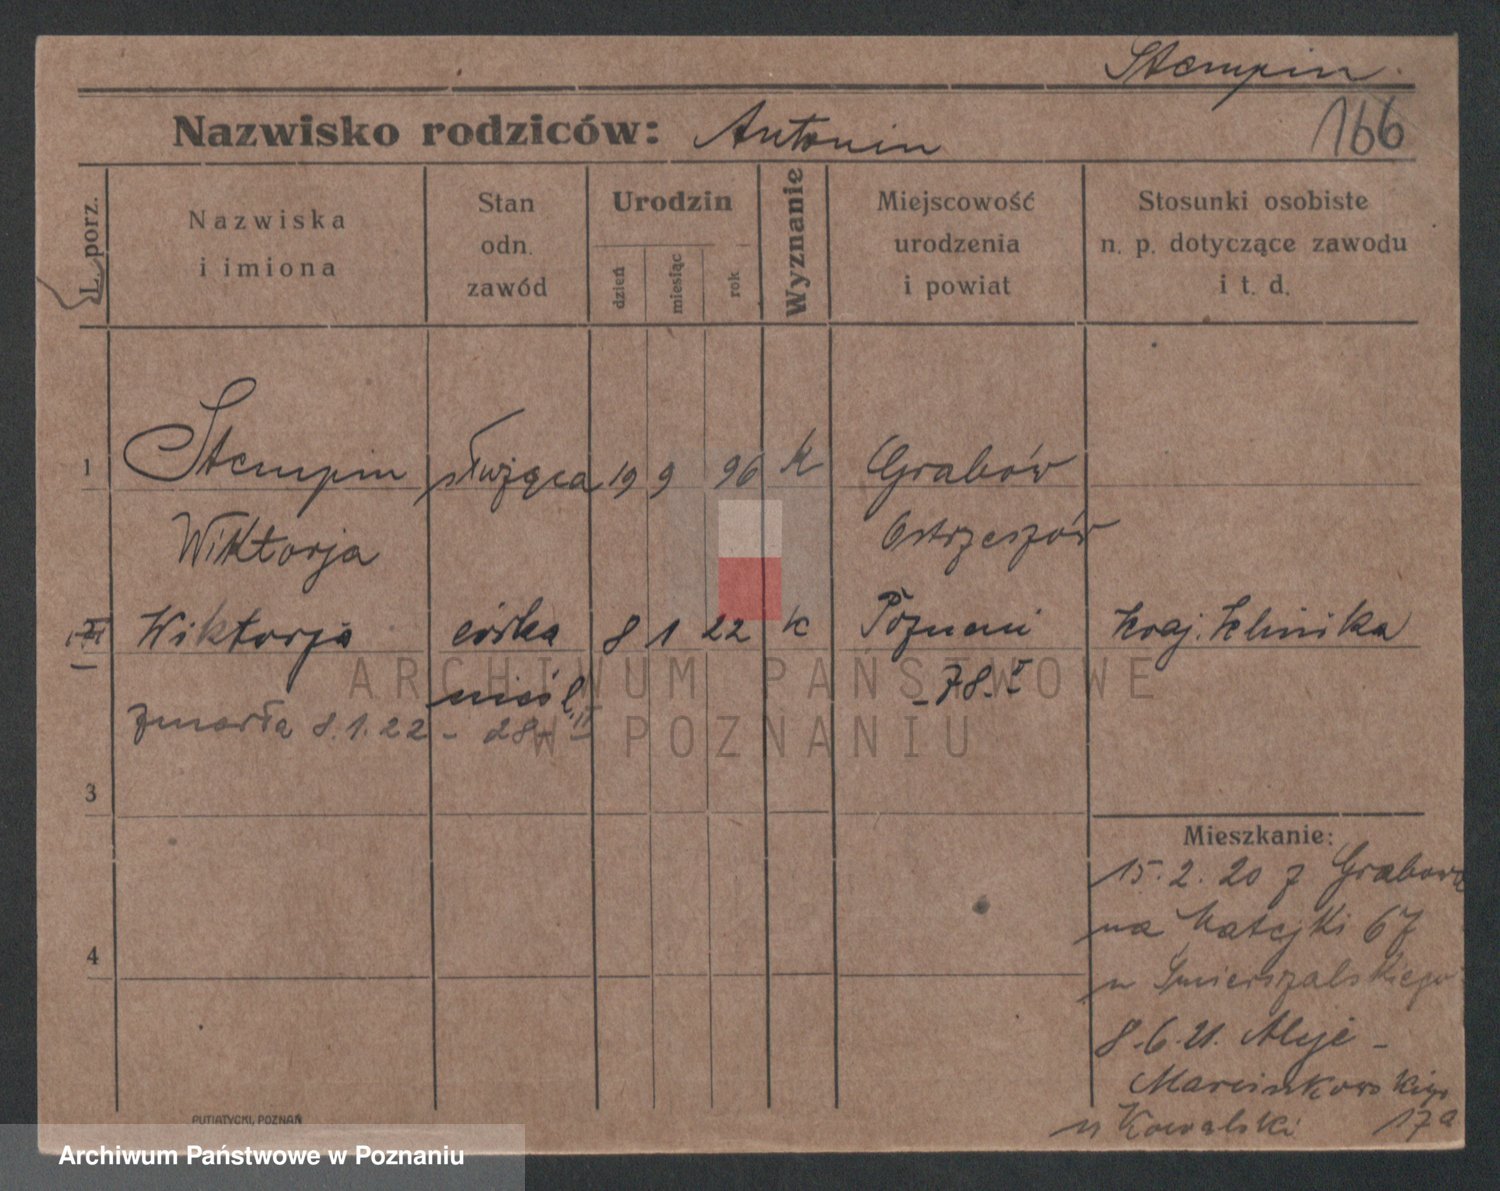 Stempin
Nazwisko rodziców: Antonin
166
L. porz.
Nazwiska
i imiona
Stan
odn.
zawód
Urodzin
dzień
miesiąc
rok
Wyznanie
Miejscowość
urodzenia
i powiat
Stosunki osobiste
n. p. dotyczące zawodu
i t. d.
1 Stempin służąca 19 9 96 k Grabów
Wiktorja Ostrzeszów
Wiktorja córka 8 1 22 k Poznań kraj. klinika
nieśl. -78-I
zmarła 8.1.22 - 28-II
3
4
Mieszkanie:
15.2.20 z Grabowa
na Matejki 67
u
8.6.21. Aleje -
Marcinkowskiego
u Kowalski 17a
PUTIATYCKI, POZNAŃ
ARCHIWUM PAŃSTWOWE
W POZNANIU
Archiwum Państwowe w Poznaniu